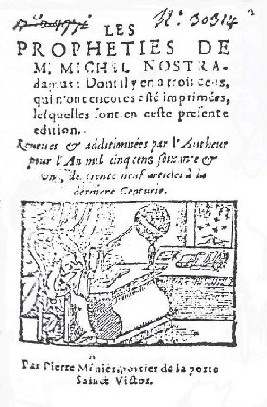 N: 30314
LES
PROPHETIES DE
M. MICHEL NOSTRA-
damus: Dont il y en a trois cens,
qui n'ont encores esté imprimées,
lesquelles sont en ceste presente
edition.
Reveues & additionnées par l'Autheur
pour l'An mil cinq cens soixante &
un, de trente neuf articles à la
derniere Centurie.
Par Pierre Ménier, portier de la porte
Sainct Victor.